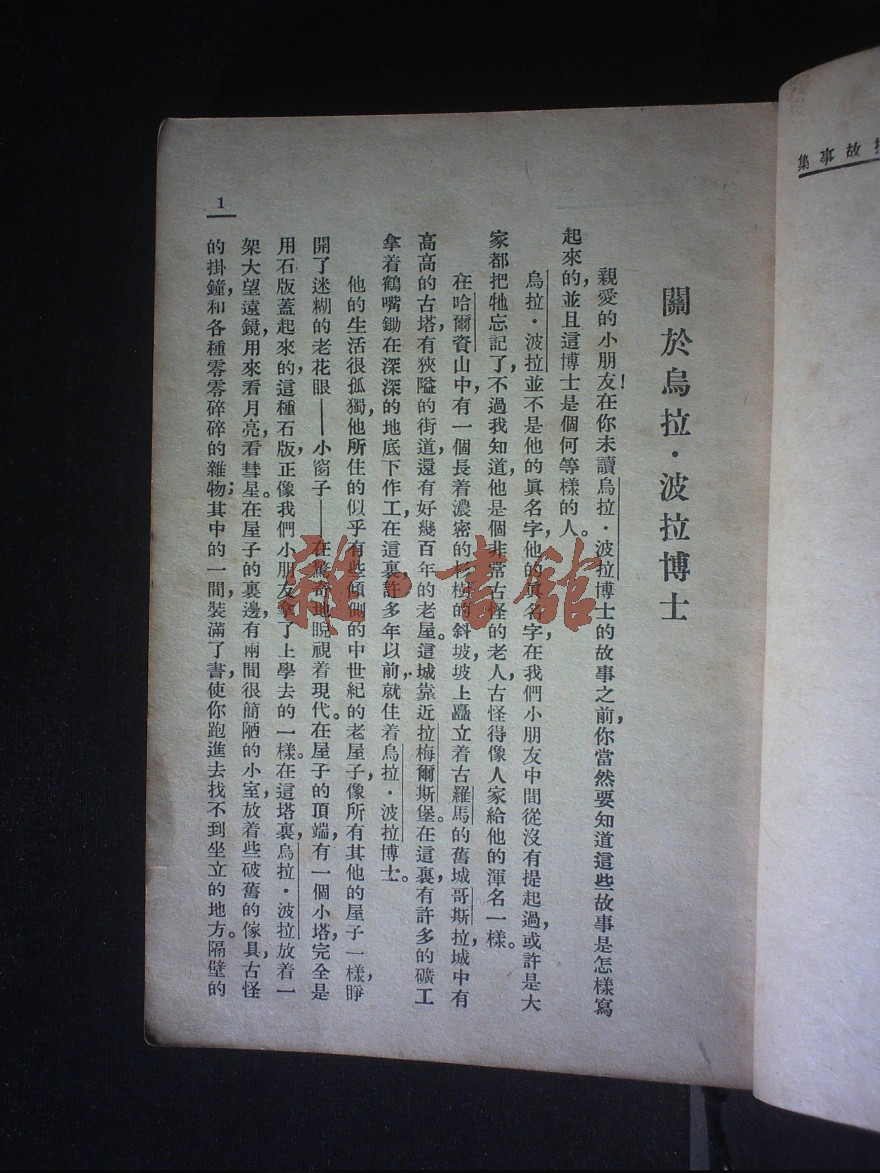 集事故
關於烏拉·波拉博士
親愛的小朋友!在你未讀烏拉·波拉博士的故事之前,你當然要知道這些故事是怎樣寫
起來的,並且這博士是個何等樣的人。
烏拉·波拉並不是他的眞名字,他的眞名字在我們小朋友中間從沒有提起過,或許是大
家都把牠忘記了,不過我知道,他是個非常古怪的老人,古怪得像人家給他的渾名一樣。
在哈爾資山中,有一個長着濃密的杉樹的斜坡,坡上矗立着古羅馬的舊城哥斯拉,城中有
高高的古塔,有狹隘的街道,還有好幾百年的老屋。這城靠近拉梅爾斯堡。在這裏,有許多的礦工
拿着鶴嘴鋤在深深的地底下作工,在這裏,許多年以前,就住着烏拉·波拉博士。
他的生活很孤獨,他所住的似乎有些傾側的中世紀的老屋子,像所有其他的屋子一樣,睜
開了迷糊的老花眼——小窗子——在驚奇地睨視着現代。在屋子的頂端,有一個小塔,完全是
用石版蓋起來的,這種石版,正像我們小朋友拿了上學去的一樣。在這塔裏,烏拉·波拉放着一
架大望遠鏡,用來看月亮,看彗星。在屋子的裏邊,有兩間很簡陋的小室,放着些破舊的傢具,古怪
的掛鐘,和各種零零碎碎的雜物;其中的一間,裝滿了書,使你跑進去找不到坐立的地方。隔壁的
1
雜·書館